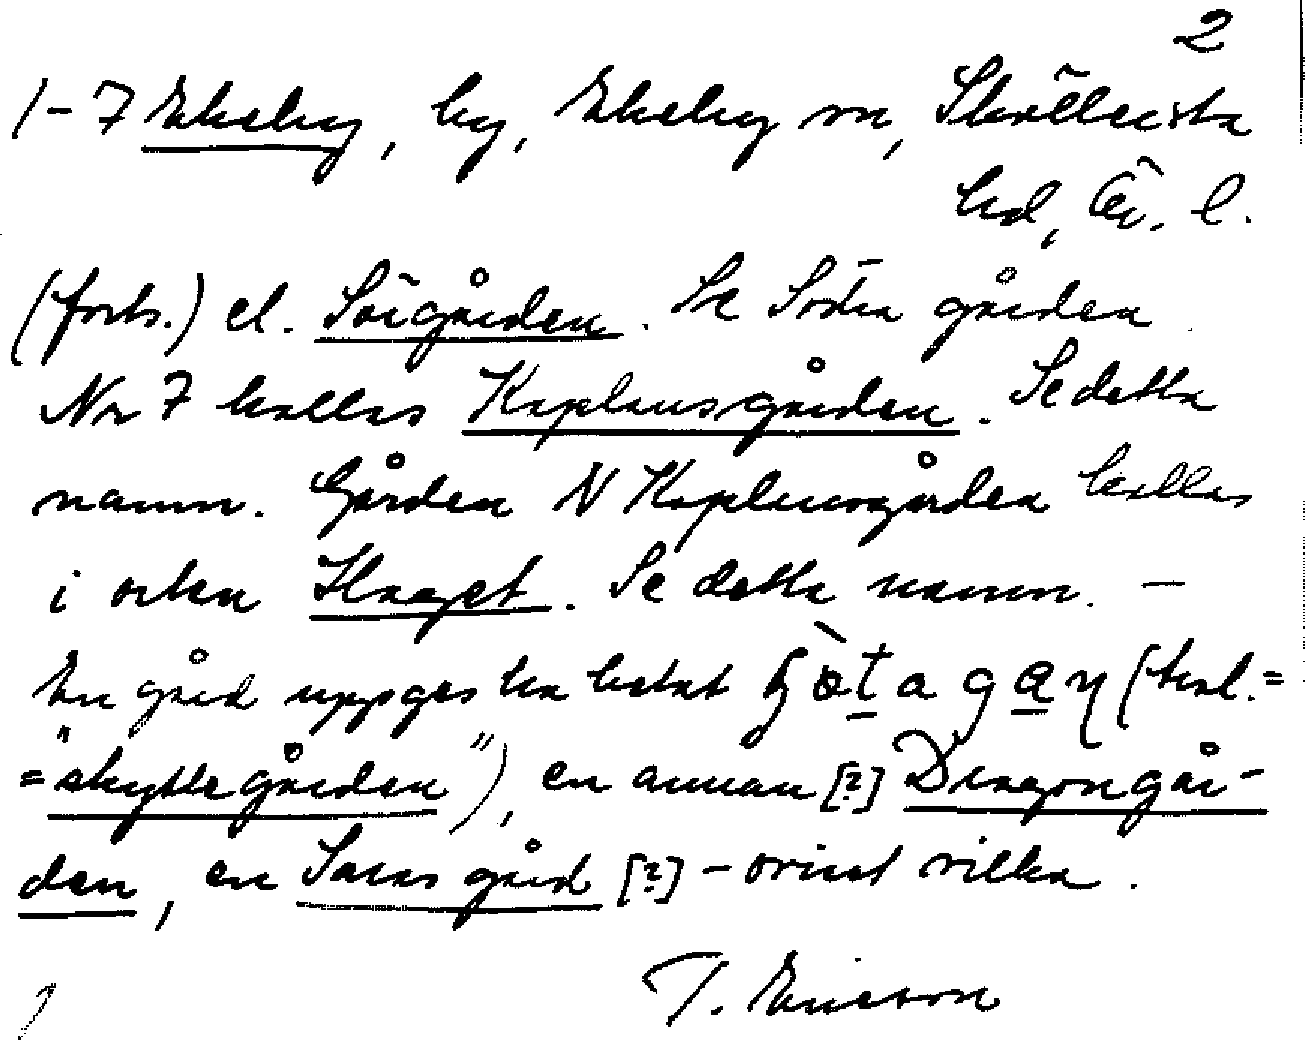 2
1-7 Ekeby, by, Ekeby sn, Sköllersta
hd, Ör. l.
(forts.) el. Sörgården. Se Södra gården
Nr 7 kallas Kaplansgården. Se detta
namn. Gården N Kaplansgården kallas
i orten Kraget. Se detta namn. —
En gård uppges ha hetat (teol.=
="skyttegården"), en annan [?] Dragongår-
den, en Saras gård [?] - ovisst vilka.
T. Ericson